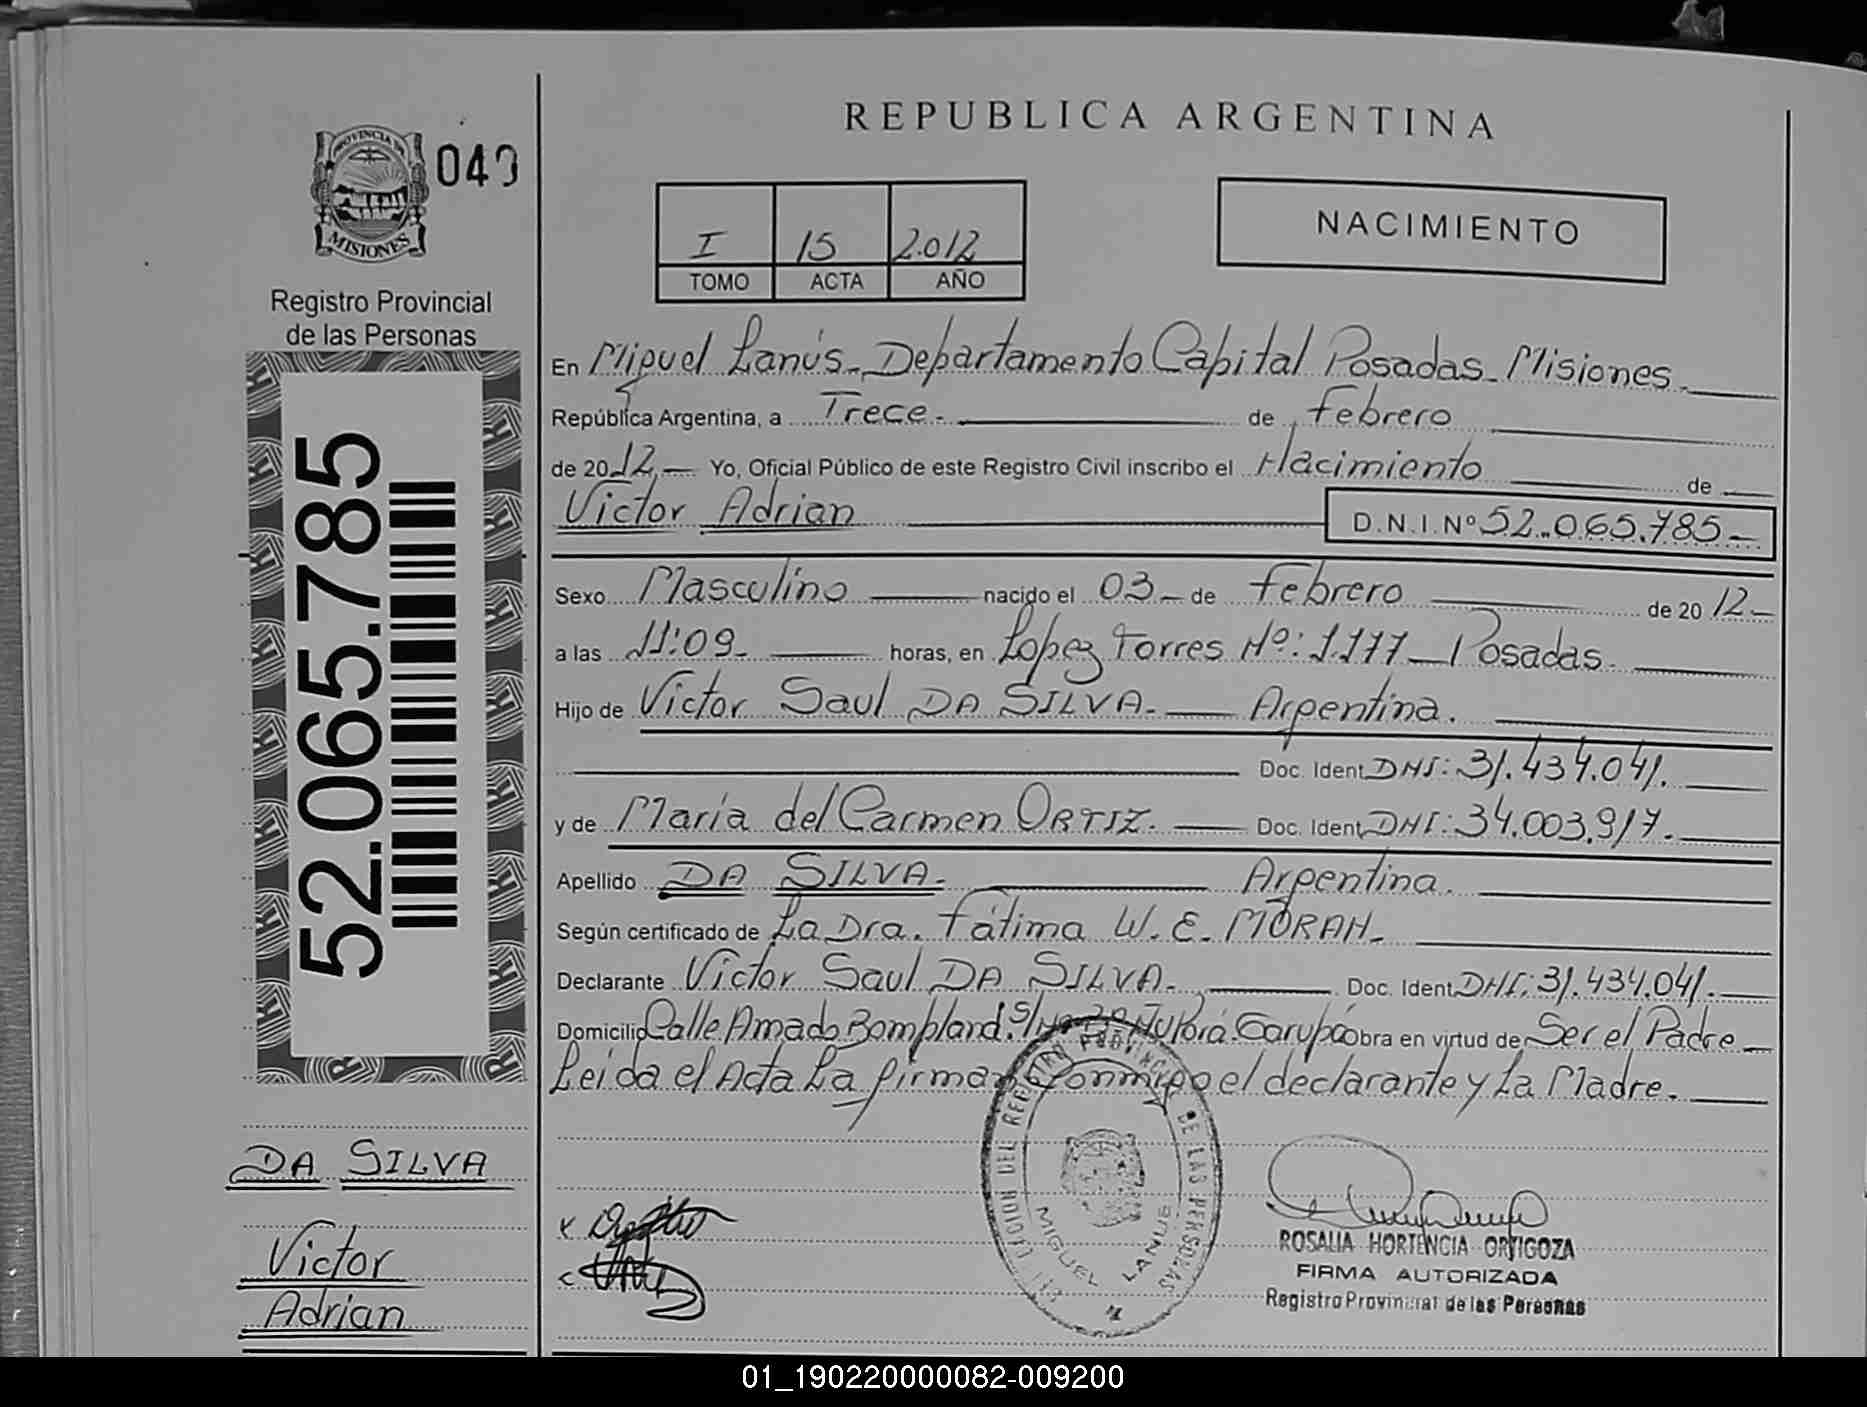 REPUBLICA ARGENTINA
PROVINCIA DE
MISIONES
Registro Provincial
de las Personas
52.065.785
I 15 2.012
TOMO ACTA AÑO
NACIMIENTO
En Miguel Lanús - Departamento Capital Posadas - Misiones.
República Argentina, a Trece. de Febrero
de 2012, Yo, Oficial Público de este Registro Civil inscribo el Nacimiento de
Victor Adrian
D.N.I.Nº 52.065.785-
Sexo Masculino nacido el 03 de Febrero de 2012-
a las 11:09 horas, en Lopez Torres Nº: 1.177 - Posadas.
Hijo de Victor Saul DA SILVA. Argentina.
Doc. Ident DNI: 31.434.041.
y de María del Carmen ORTIZ. Doc. Ident DNI: 34.003.917.
Apellido DA SILVA. Argentina.
Según certificado de La Dra. Fátima W. E. MORAN.
Declarante Victor Saul DA SILVA. Doc. Ident DNI: 31.434.041.
Domicilio Calle Amado Bompland. S/Nº Garupá obra en virtud de Ser el Padre
Leida el Acta La firman Conmigo el declarante y La Madre.
DA SILVA
Victor
Adrian
DEL REGISTRO PROVINCIAL DE LAS PERSONAS
MIGUEL LANUS
ROSALIA HORTENCIA ORTIGOZA
FIRMA AUTORIZADA
Registro Provincial de las Personas
01_190220000082-009200